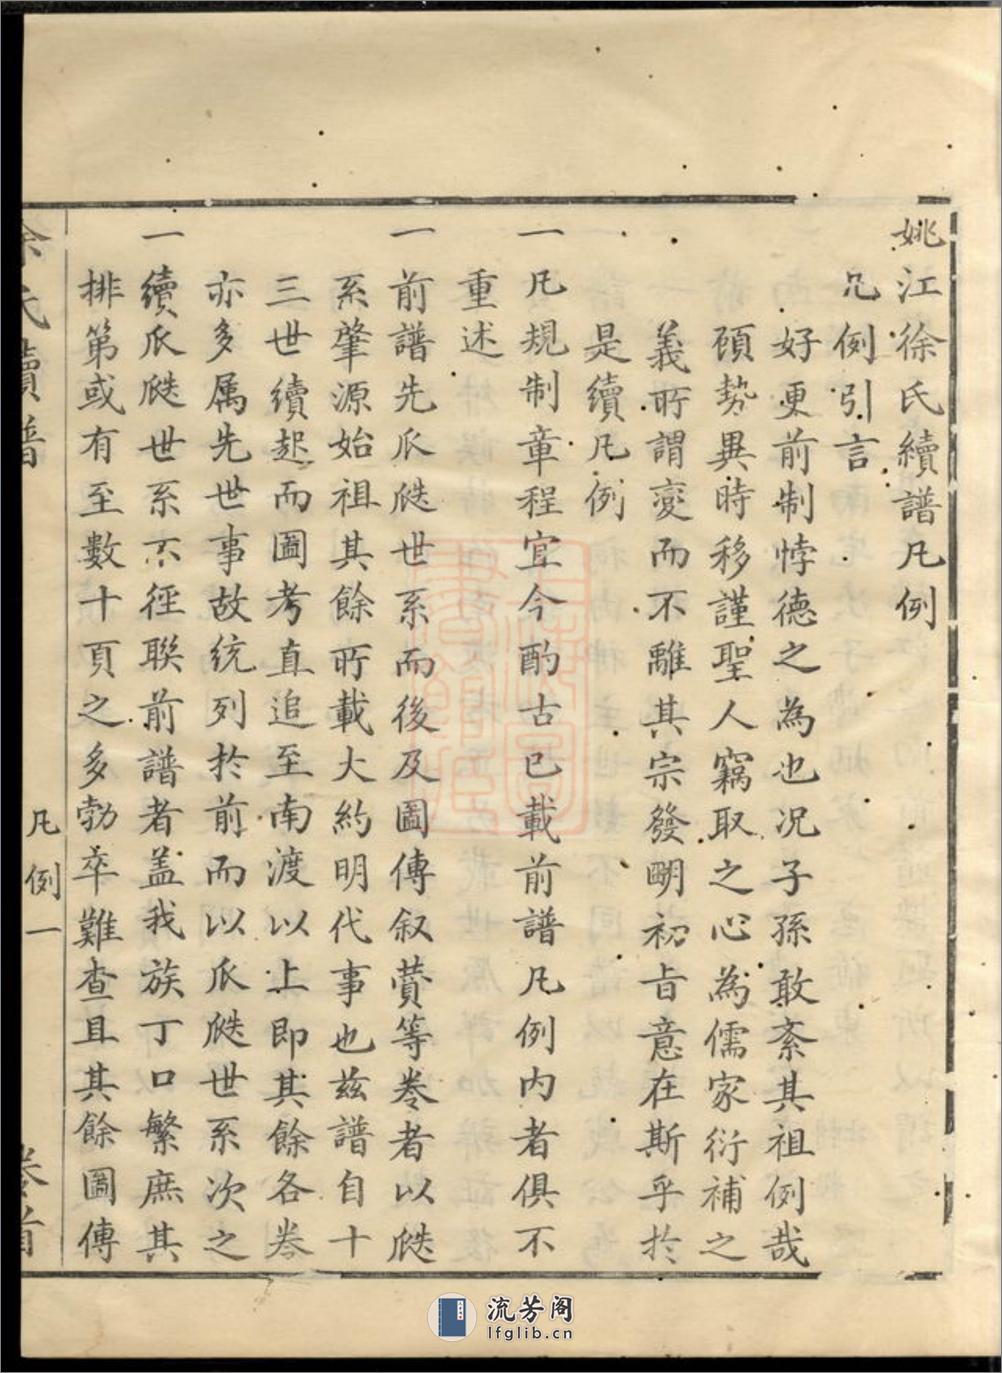 姚江徐氏續譜凡例
凡例引言
好更前制悖德之為也况子孫敢紊其祖例哉
頋势異時移謹聖人竊取之心為儒家衍補之
義所謂變而不離其宗發明初旨意在斯乎於
是續凡例
一凡規制章程宜今酌古已載前譜凡例内者俱不
重述
一前譜先瓜瓞世系而後及圖傳叙賛等卷者以瓞
系肇源始祖其餘所載大約明代事也兹譜自十
三世續起而圖考直追至南渡以上即其餘各卷
亦多属先世事故统列於前而以瓜瓞世系次之
一續瓜瓞世系不徑聯前譜者盖我族丁口繁庶其
排第或有至數十頁之多勃卒難查且其餘圖傳
徐氏續譜
凡例一
卷首
流芳阁
lfglib.cn